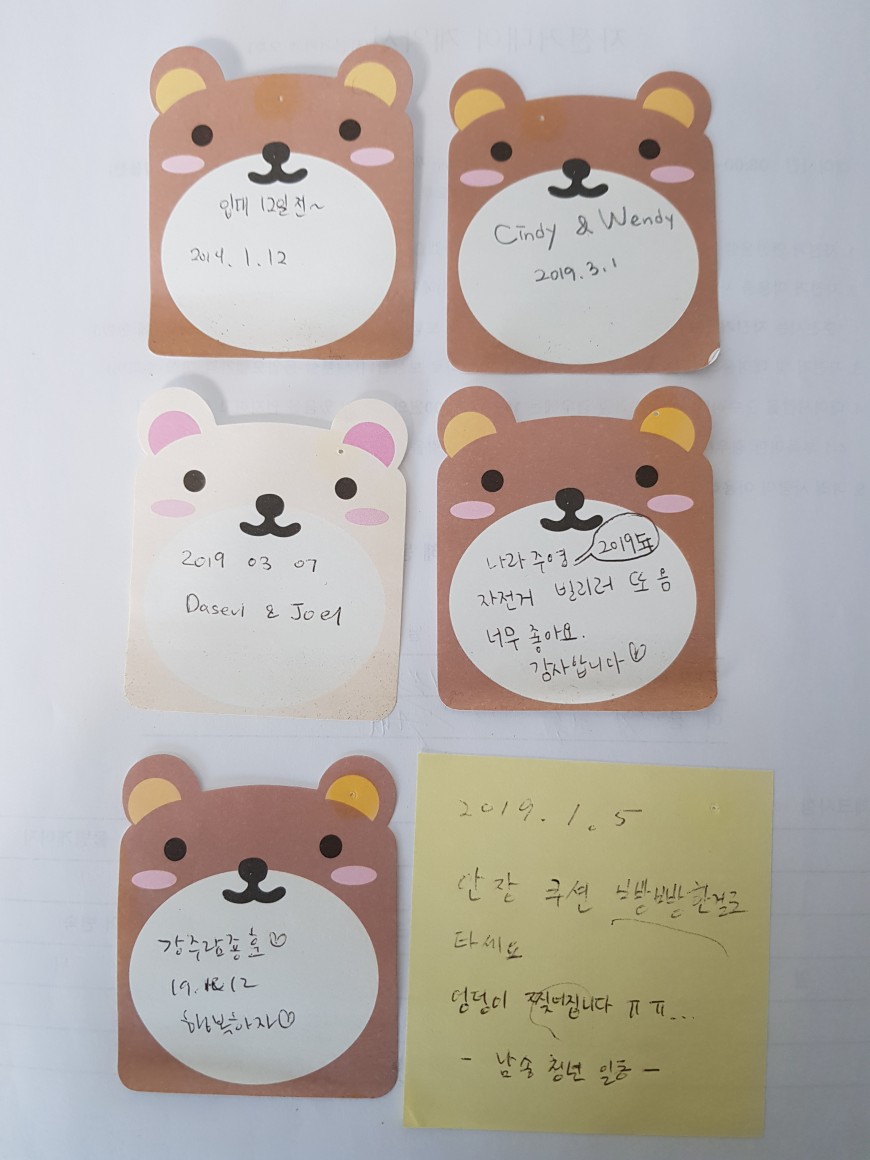 입대 12일 전~
2014. 1. 12
Cindy & Wendy
2019. 3. 1
2019 03 07
& Joel
나라 주영 2019年
자전거 빌리러 또 옴
너무 좋아요.
감사합니다♡
19. 12
행복하자♡
2019. 1. 5
안장 쿠션 빵빵한걸로
타세요
엉덩이 찢어집니다 ㅠㅠ...
- 남송 청년 일동 -